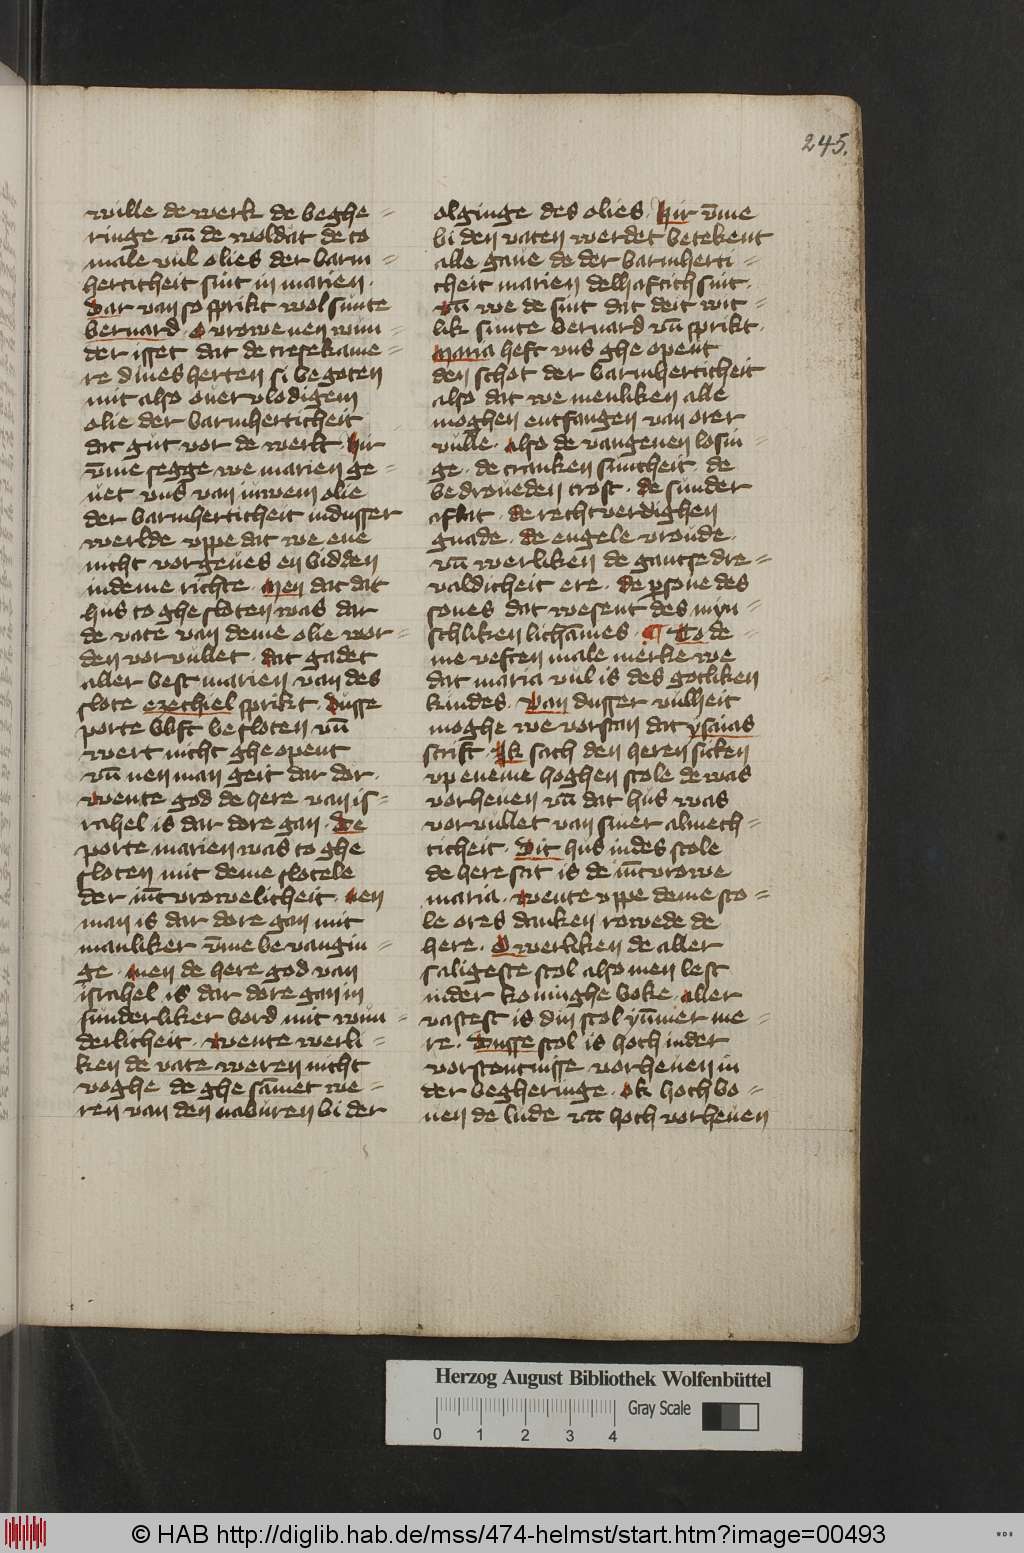 245.
wille de werk de beghe=
ringe vn̄ de woldat de to
male vul olies der barm=
herticheit sint in marien.
Dar van so sprikt wol sunte
bernard. O vrowe nen wun=
der isset dat de tresekame=
re dines herten si begoten
mit also ouervlodigem
olie der barmherticheit
dat gut vor de werkt. Hir
v̄me segge we marien ge=
uet vns van iuwem olie
der barmherticheit indusser
werlde vppe dat we ene
nicht vorgeues en bidden
indeme richte. Men dat dat
hus to ghesloten was dar
de vate van deme olie wor=
den vorvullet. dat gadet
aller best marien van des
slote ezechiel sprikt. Dusse
porte blift besloten vn̄
wert nicht gheopent
vn̄ nen man geit dar dor.
wente god de here van is=
rahel is dar dore gan. De
porte marien was to ghe
sloten mit deme slotele
der iuncvrowelicheit. nen
man is dar dore gan mit
manliker v̄me bevangin=
ge. men de here god van
israhel is dar dore gan in
sunderliker bord mit wun=
derlicheit. wente werli=
ken de vate weren nicht
voghe de ghesam̄et we=
ren van den naburen bi der
olginge des olies. Hir v̄me
bi den vaten werdet betekent
alle gaue de der barmherti=
cheit marien delhaftich sint.
vn̄ we de sint dat deit wit=
lik sunte bernard vn̄ sprikt.
Maria heft vns gheopent
den schot der barmherticheit
also dat we menliken alle
moghen entfangen van orer
vulle. Also de vangenen losin=
ge. de cranken suntheit de
bedroueden trost. de sunder
aflat. de rechtverdighen
gnade. de engele vroude.
vn̄ werliken de gantse dre=
valdicheit ere. de psone des
sones dat wesent des myn=
schliken lichāmes. ¶ To de=
me veften male merke we
dat maria vul is des gotliken
kindes. Van dusser vulheit
moghe we vorstan dat ysaias
scrift. Ik sach den heren sitten
vp eneme hoghen stole de was
vorheuen vn̄ dat hus was
vorvullet van siner almech=
ticheit. Dit hus indes stole
de here sat is de iuncvrowe
maria. wente vppe deme sto=
le ores danken rowede de
here. O werliken de aller
saligeste stol also men lest
inder koninghe boke. aller
vastest is din stol ym̄er me=
re. Dusse stol is hoch inder
vorstentnisse vorheuen in
der begheringe. ok hoch bo=
uen de lude vn̄ hoch vorheuen
Herzog August Bibliothek Wolfenbüttel
Gray Scale
0 1 2 3 4
© HAB http://diglib.hab.de/mss/474-helmst/start.htm?image=00493